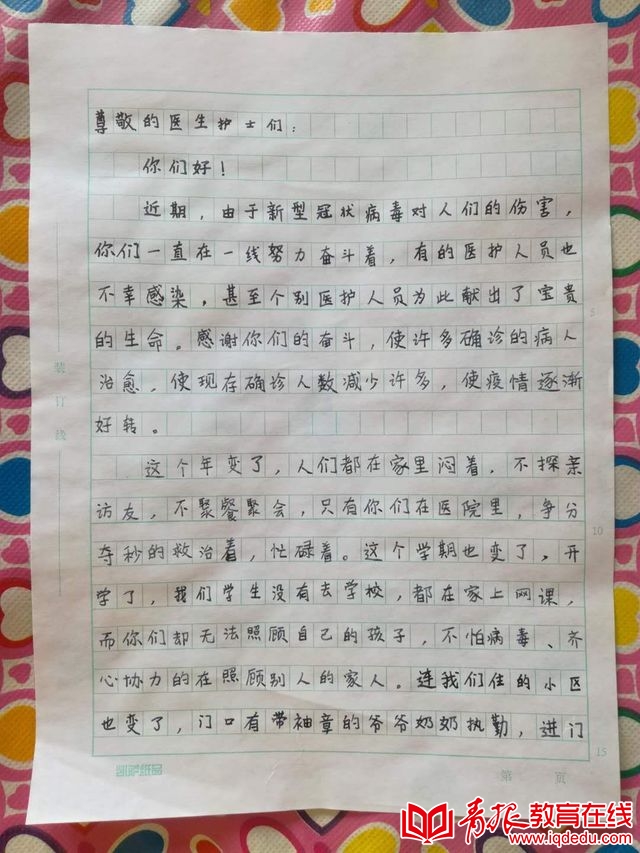 尊敬的医生护士们：
你们好！
近期，由于新型冠状病毒对人们的伤害，
你们一直在一线努力奋斗着，有的医护人员也
不幸感染，甚至个别医护人员为此献出了宝贵
的生命。感谢你们的奋斗，使许多确诊的病人
治愈，使现存确诊人数减少许多，使疫情逐渐
好转。
这个年变了，人们都在家里闷着，不探亲
访友，不聚餐聚会，只有你们在医院里，争分
夺秒的救治着，忙碌着。这个学期也变了，开
学了，我们学生没有去学校，都在家上网课，
而你们却无法照顾自己的孩子，不怕病毒、齐
心协力的在照顾别人的家人。连我们住的小区
也变了，门口有带袖章的爷爷奶奶执勤，进门
5
10
15
装订线
第 页
青报教育在线
www.iqdedu.com